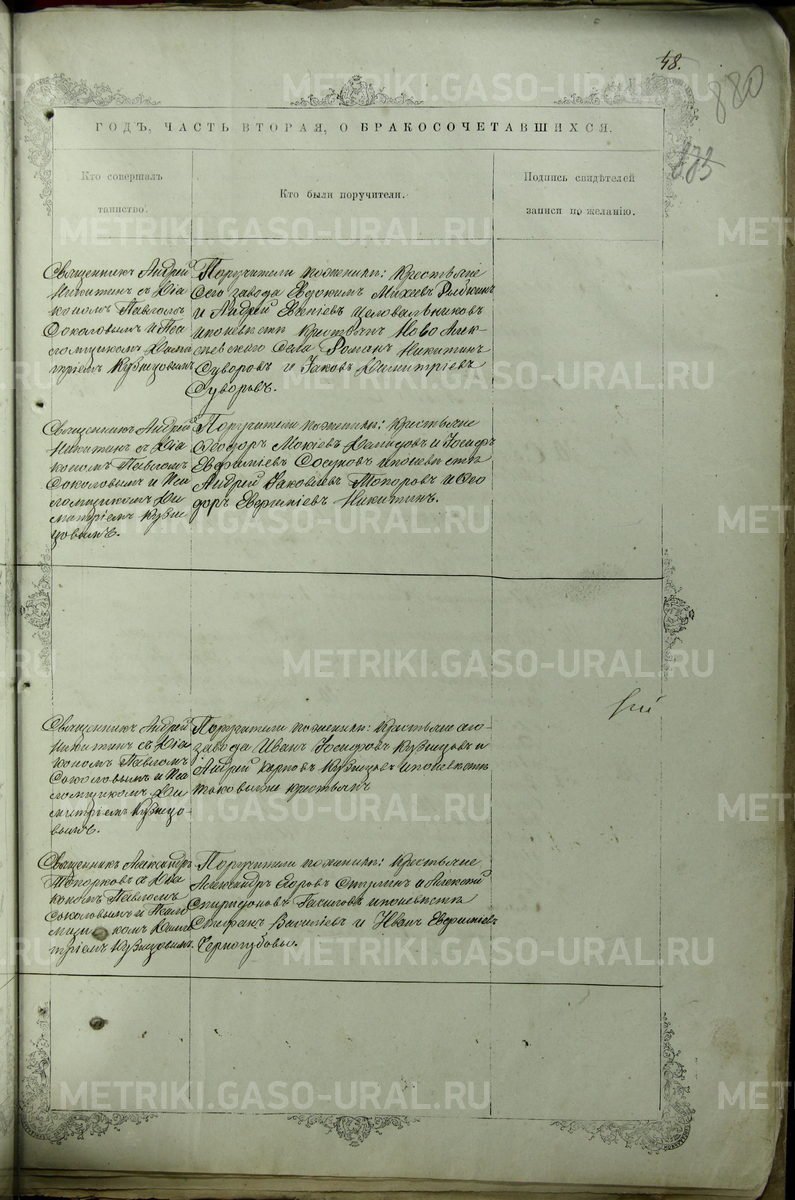 48.
880
ГОДЪ, ЧАСТЬ ВТОРАЯ, О БРАКОСОЧЕТАВШИХСЯ.
Кто совершалъ
таинство.
Кто были поручители.
Подпись свидѣтелей
записи по желанію.
Священникъ Андрей
Никитин с Діа
кономъ Павломъ
Соколовымъ и Пса
ломщикомъ Дими
тріемъ Кузнцовымъ
Поручители по женихѣ: Крестьяне
Сего завода Евдокимъ Михеевъ
и Андрей Целовальниковъ
и по невѣстѣ Крестьяне
села Романъ Никитинъ
Суворовъ и Іаковъ Димитріевъ
Суворовъ.
Священникъ Андрей
Никитин с Діа
кономъ Павломъ
Соколовымъ и Пса
ломщикомъ Ди
митріемъ Кузне
цовымъ.
Поручители по женихѣ: Крестьяне
Ѳеодоръ и Іосифъ
Евфиміевъ Сосуновъ и по невѣстѣ
Андрей Іаковлевъ Топоровъ и Ѳео
доръ Евфиміевъ Никитинъ.
Священникъ Андрей
Никитин съ Діа
кономъ Павломъ
Соколовымъ и Пса
ломщикомъ Ди
митріемъ Кузнцо
вымъ.
Поручители по женихѣ: Крестьяне сего
завода Иванъ Іосифовъ Кузнцовъ и
Андрей Карповъ Кузнцовъ и по невѣстѣ
таковыеже крестьяне
Священникъ Александръ
Топорковъ с Діа
кономъ Павломъ
Соколовымъ и Псало
мщикомъ Дими
тріемъ Кузнцовымъ
Поручители по женихѣ: Крестьяне
Александръ Егоровъ и Алексѣй
Спиридоновъ и по невѣстѣ
Стефанъ Василіевъ и Иванъ Евфиміевъ
METRIKI.GASO-URAL.RU